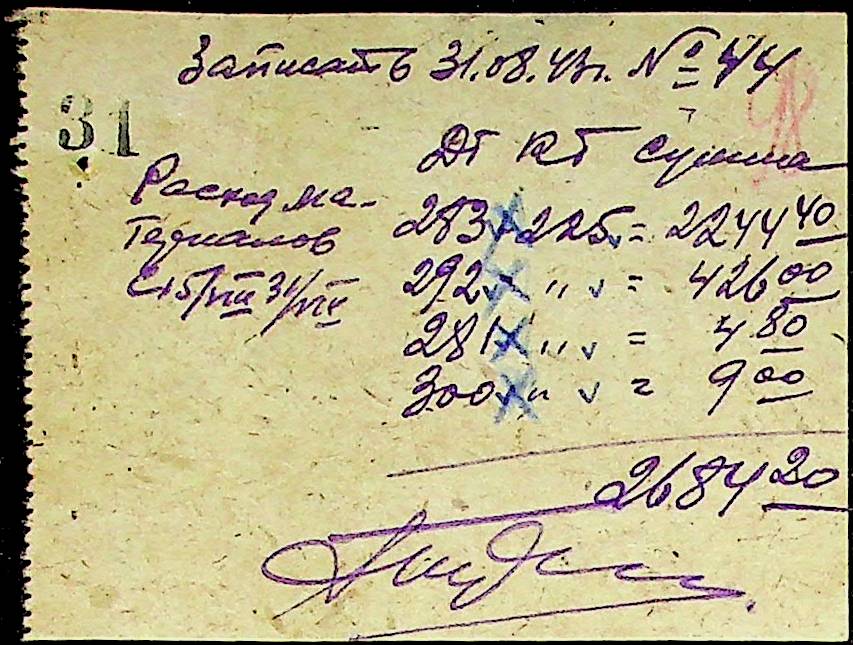 Записать 31.08.43г. № 44
31
Дт Кт Сумма
Расход ма-
териалов
с 15/VIII 31/VIII
283 225 = 2244 40
292 " = 426 00
281 " = 4 80
300 " = 9 00
2684 20